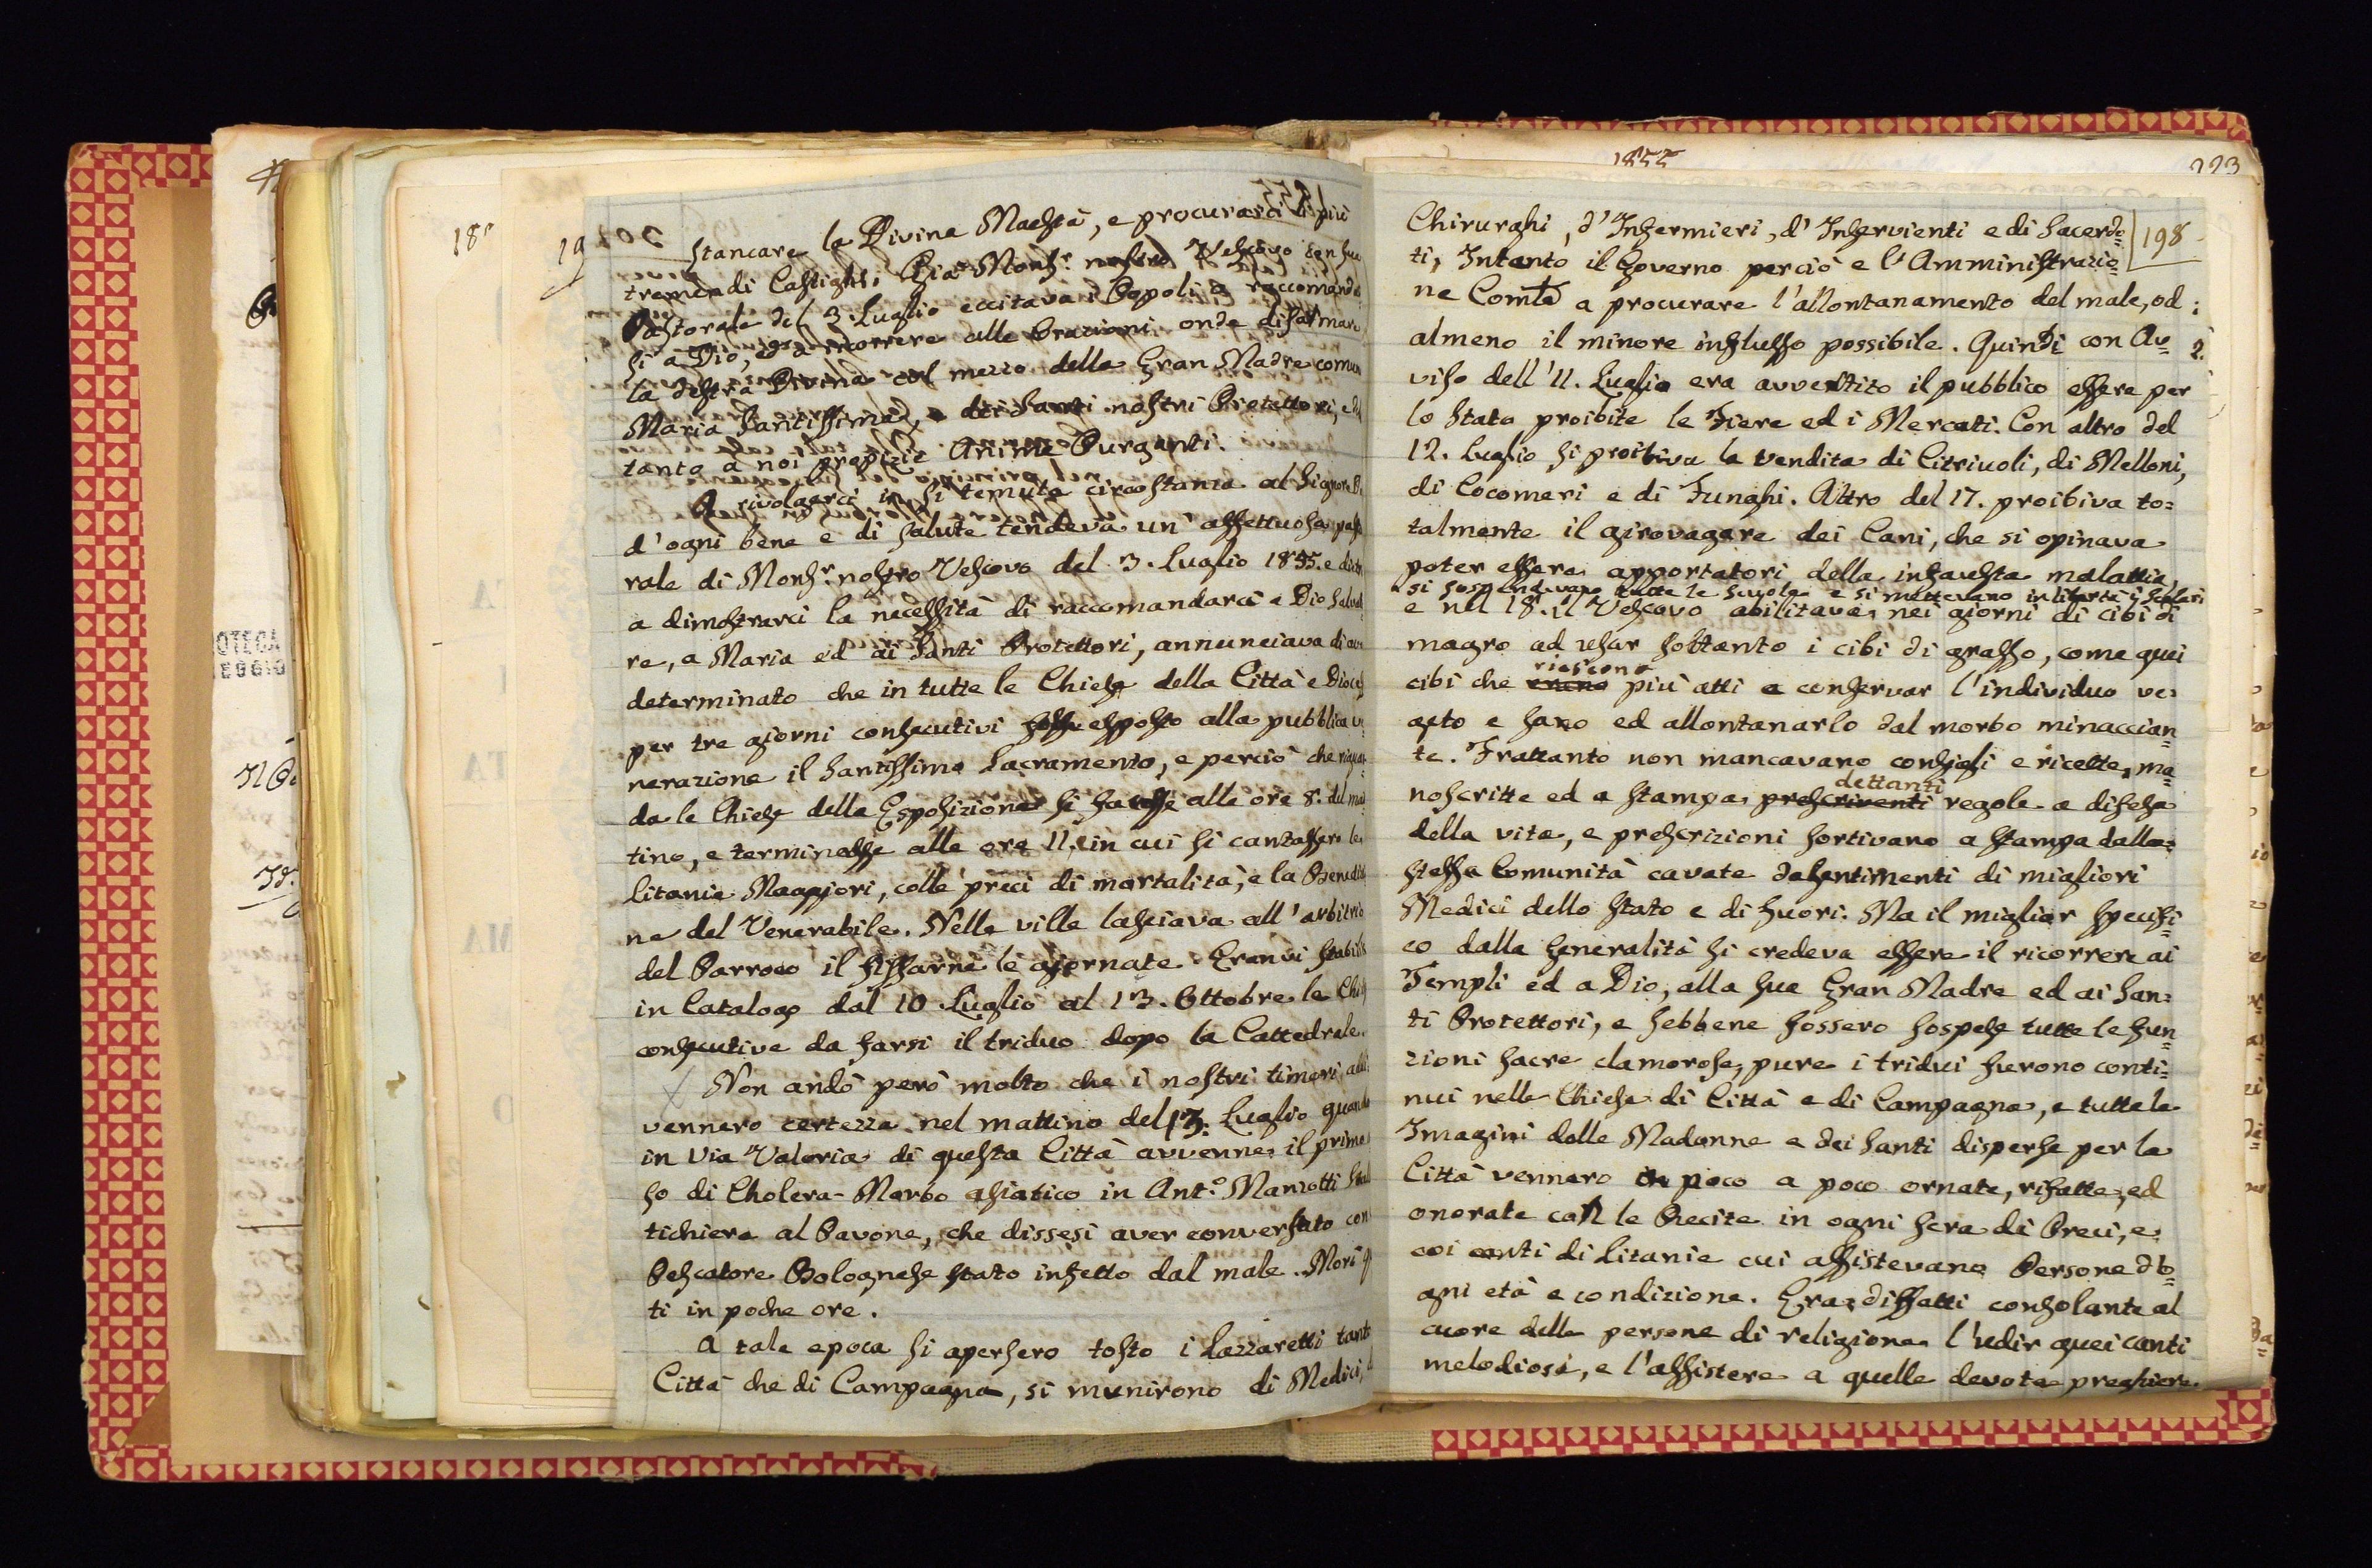 stancare la Divina Maestà, e procurarci li più
tremendi Castighi. Già Monsr. nostro Vescovo con sua
Pastorale del 3. Luglio eccitava i Popoli a raccomandar
si a Dio, ed a ricorrere alle Orazioni onde disarmare
la destra Divina col mezzo della Gran Madre comun
Maria Santissima, e dei Santi nostri Protettori, e
tanto a noi propizie Anime Purganti.
A rivolgerci in si temuta circostanza al Signore
d'ogni bene e di salute tendeva un' affettuosa pasto
rale di Monsr. nostro Vescovo del 3. Luglio 1855. e
a dimostrarci la necessità di raccomandarci a Dio Salvato
re, a Maria ed ai Santi Protettori, annunciava di aver
determinato che in tutte le Chiese della Città e Diocesi
per tre giorni consecutivi fosse esposto alla pubblica ve
nerazione il Santissimo Sacramento, e perciò che riguar
da le Chiese della Esposizione si facesse alle ore 8. del mat
tino, e terminasse alle ore 11. in cui si cantassero le
litanie Maggiori, colle preci di mortalità, e la Benedizio
ne del Venerabile. Nelle ville lasciava all'arbitrio
del Parroco il fissarne le giornate. Eranvi stabilite
in Catalogo dal 10 Luglio al 13. Ottobre le Chiese
consecutive da farsi il triduo dopo la Cattedrale.
Non andò però molto che i nostri timori
vennero certezza nel mattino del 13. Luglio quando
in Via Valoria di questa Città avvenne il primo
so di Cholera-Morbo asiatico in Anto. Manzotti
tichiere al Pavone, che dissesi aver conversato con
Pescatore Bolognese stato infetto dal male. Morì
ti in poche ore.
A tale epoca si apersero tosto i Lazzaretti tanto
Città che di Campagna, si munirono di Medici,
1855
223
198
Chirurghi, d'Infermieri, d'Inservienti e di Sacerdo=
ti, Intanto il Governo perciò e l'Amministrazio=
ne Comle a procurare l'allontanamento del male, od
almeno il minore influsso possibile. Quindi con Av=
viso dell'11. Luglio era avvertito il pubblico essere per
lo Stato proibite le Fiere ed i Mercati. Con altro del
12. Luglio si proibiva la vendita di Citriuoli, di Melloni,
di Cocomeri e di Funghi. Altro del 17. proibiva to=
talmente il girovagare dei Cani, che si opinava
poter essere apportatori della infausta malattia,
si sospendevano tutte le Scuole e si mettevano in libertà i Scolari
e nel 18. il Vescovo abilitava nei giorni di cibi di
magro ad usar soltanto i cibi di grasso, come quei
riescono
cibi che erano più atti a conservar l'individuo ve=
geto e sano ed allontanarlo dal morbo minaccian=
te. Frattanto non mancavano consigli e ricette, ma=
dettanti
noscritte ed a stampa, prescriventi regole a difesa
della vita, e prescrizioni sortivano a stampa dalla
stessa Comunità cavate da sentimenti di migliori
Medici dello Stato e di fuori. Ma il miglior specifi=
co dalla generalità si credeva essere il ricorrere ai
Templi ed a Dio, alla sua Gran Madre ed ai San=
ti Protettori, e sebbene fossero sospese tutte le fun=
zioni sacre clamorose, pure i tridui furono conti=
nui nelle Chiese di Città e di Campagna, e tutte le
Imagini delle Madonne e dei Santi disperse per la
Città vennero a poco a poco ornate, rifatte, ed
onorate con le Recite in ogni sera di Preci, e
coi canti di Litanie cui assistevano Persone d'o=
gni età e condizione. Era diffatti consolante al
cuore delle persone di religione l'udir quei canti
melodiosi, e l'assistere a quelle devote preghiere